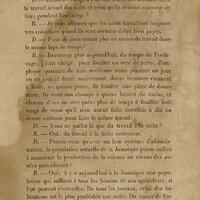 le travail actuel des noirs et celui qu'ils avaient coutume de
faire pendant l'esclavage ?
R. — Je puis affirmer que les noirs travaillent toujours
très-volontiers quand ils sont certains d'être bien payés.
D. — Font-ils maintenant plus ou moins de travail dans
le même laps de temps ?
R. — Beaucoup plus aujourd'hui. du temps de l'escla-
vage, j'étais obligé, pour fouiller un de terre, d'em-
ployer quarante de mes meilleurs noirs pendant un jour
ou un jour et demi; maintenant, douze hommes viennent
à bout, en quinze jours, de fouiller une pièce de douze
acres. Ils vont aux champs à quatre heures du matin, et
chacun d'eux ne met pas plus de temps à fouiller huit
de terre qu'il n'en aurait fallu autrefois à dix ou
douze esclaves pour faire le même travail.
D. — Vous ne parlez là que du travail à la tâche ?
R. — Oui, du travail à la tâche seulement.
D. — Pensez-vous qu'avec un bon système d'adminis-
tration, la population actuelle de la Jamaïque puisse suffire
à maintenir la production de la colonie au niveau des an-
nées précédentes ?
R. — Oui; il y a aujourd'hui à la Jamaïque une popu-
lation qui suffirait à tous les besoins de son agriculture, si
l'on pouvait s'entendre. De tous les travaux, celui des
est le plus profitable aux noirs. Du temps de l'es-